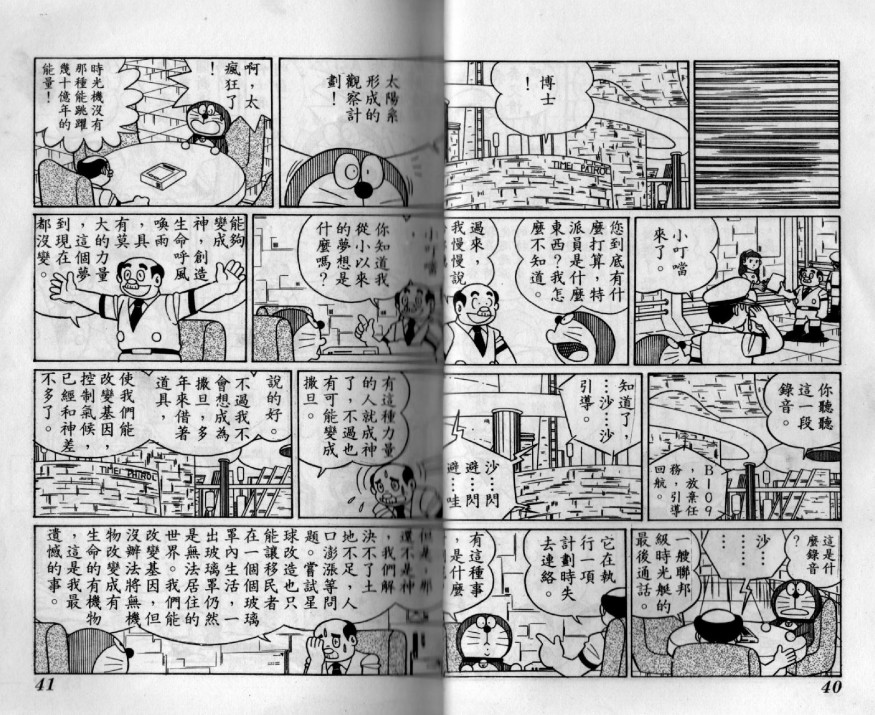 博士
！
TIME PATROL
小叮噹
來了。
您到底有什
麼打算，特
派員是什麼
東西？我怎
麼不知道。
過來，
我慢慢說
你聽聽
這一段
錄音。
B109
，放棄任
務，引導
回航。
知道了，
…沙…沙
引導。
沙…閃
避…閃
避…哇
這是什
麼錄音
？
沙…
……
……
一艘聯邦
級時光艇的
最後通話。
它在執
行一項
計劃時失
去連絡。
有這種事
，是什麼
40
太陽系
形成的
觀察計
劃！
啊，太
瘋狂了
！
時光機沒有
那種能跳躍
幾十億年的
能量！
小叮噹
，
你知道我
從小以來
的夢想是
什麼嗎？
能夠
變成
神，創造
生命呼風
喚雨
，具
有莫
大的力量
，這個夢
到現在
都沒變。
有這種力量
的人就成神
了，不過也
有可能變成
撒旦。
說的好。
不過我不
會想成為
撒旦，多
年來借著
道具，
使我們能
改變基因，
控制氣候，
已經和神差
不多了。
TIME PATROL
但是，那
還不是神
，我們解
決不了土
地不足，人
口澎漲等問
題。嘗試星
球改造也只
能讓移民者
在一個個玻璃
罩內生活，一
出玻璃罩仍然
是無法居住的
世界。我們能
改變基因，但
沒辦法將無機
物改變成有
生命的有機物
，這是我最
遺憾的事。
41